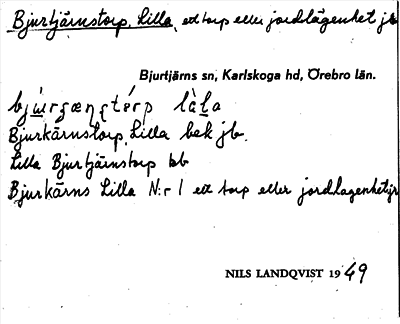 Bjurtjärnstorp, Lilla, ett torp eller jordlägenhet jb
Bjurtjärns sn, Karlskoga hd, Örebro län.
Bjurkärnstorp, Lilla bek jb.
Lilla Bjurtjärnstorp bb
Bjurkärns Lilla N:r 1 ett torp eller jordlagenhet jr
NILS LANDQVIST 1949